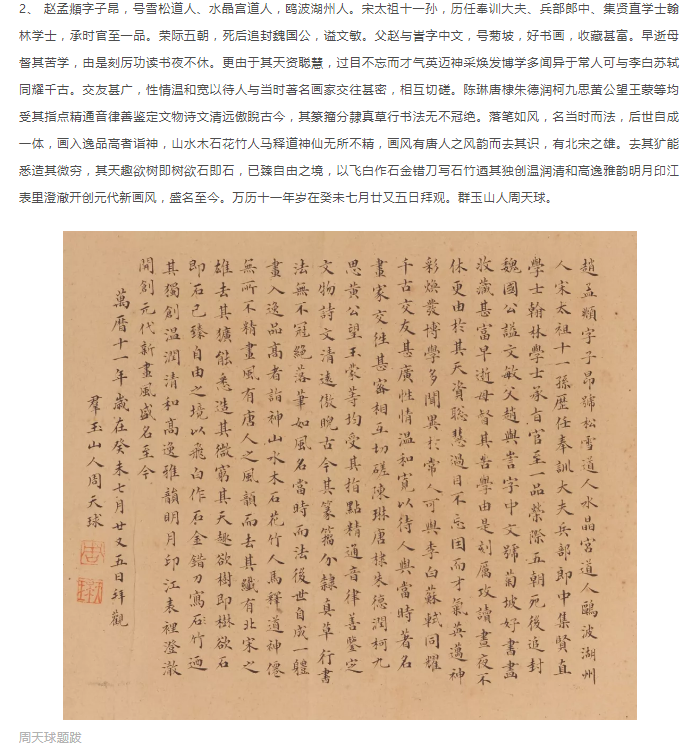 2、 赵孟頫字子昂，号雪松道人、水晶宫道人，鸥波湖州人。宋太祖十一孙，历任奉训大夫、兵部郎中、集贤直学士翰
林学士，承时官至一品。荣际五朝，死后追封魏国公，谥文敏。父赵与訔字中文，号菊坡，好书画，收藏甚富。早逝母
督其苦学，由是刻厉功读书夜不休。更由于其天资聪慧，过目不忘而才气英迈神采焕发博学多闻异于常人可与李白苏轼
同耀千古。交友甚广，性情温和宽以待人与当时著名画家交往甚密，相互切磋。陈琳唐棣朱德润柯九思黄公望王蒙等均
受其指点精通音律善鉴定文物诗文清远傲睨古今，其篆籀分隸真草行书法无不冠绝。落笔如风，名当时而法，后世自成
一体，画入逸品高者诣神，山水木石花竹人马释道神仙无所不精，画风有唐人之风韵而去其识，有北宋之雄。去其犷能
悉造其微穷，其天趣欲树即树欲石即石，已臻自由之境，以飞白作石金错刀写石竹迺其独创温润清和高逸雅韵明月印江
表里澄澈开创元代新画风，盛名至今。万历十一年岁在癸未七月廿又五日拜观。群玉山人周天球。
趙孟頫字子昂號松雪道人水晶宮道人鷗波湖州
人宋太祖十一孫歷任奉訓大夫兵部郎中集賢直
學士翰林學士承旨官至一品榮際五朝死後追封
魏國公謚文敏父趙與訔字中文號菊坡好書畫
收藏甚富早逝母督其苦學由是刻厲攻讀晝夜不
休更由於其天資聡慧過目不忘因而才氣英邁神
彩煥發博學多聞異於常人可與李白蘇軾同耀
千古交友甚廣性情溫和寬以待人與當時著名
畫家交往甚密相互切磋陳琳唐棣朱德潤柯九
思黃公望王蒙等均受其指點精通音律善鑒定
文物詩文清遠傲睨古今其篆籀分隸真草行書
法無不冠絕落筆如風名當時而法後世自成一體
畫入逸品高者詣神山水木石花竹人馬釋道神僊
無所不精畫風有唐人之風韻而去其纖有北宋之
雄去其獷能悉造其微窮其天趣欲樹即樹欲石
即石已臻自由之境以飛白作石金錯刀寫石竹迺
其獨創溫潤清和高逸雅韻明月印江表裡澄澈
開創元代新畫風盛名至今
萬曆十一年歲在癸未七月廿又五日拜觀
羣玉山人周天球
周天球题跋